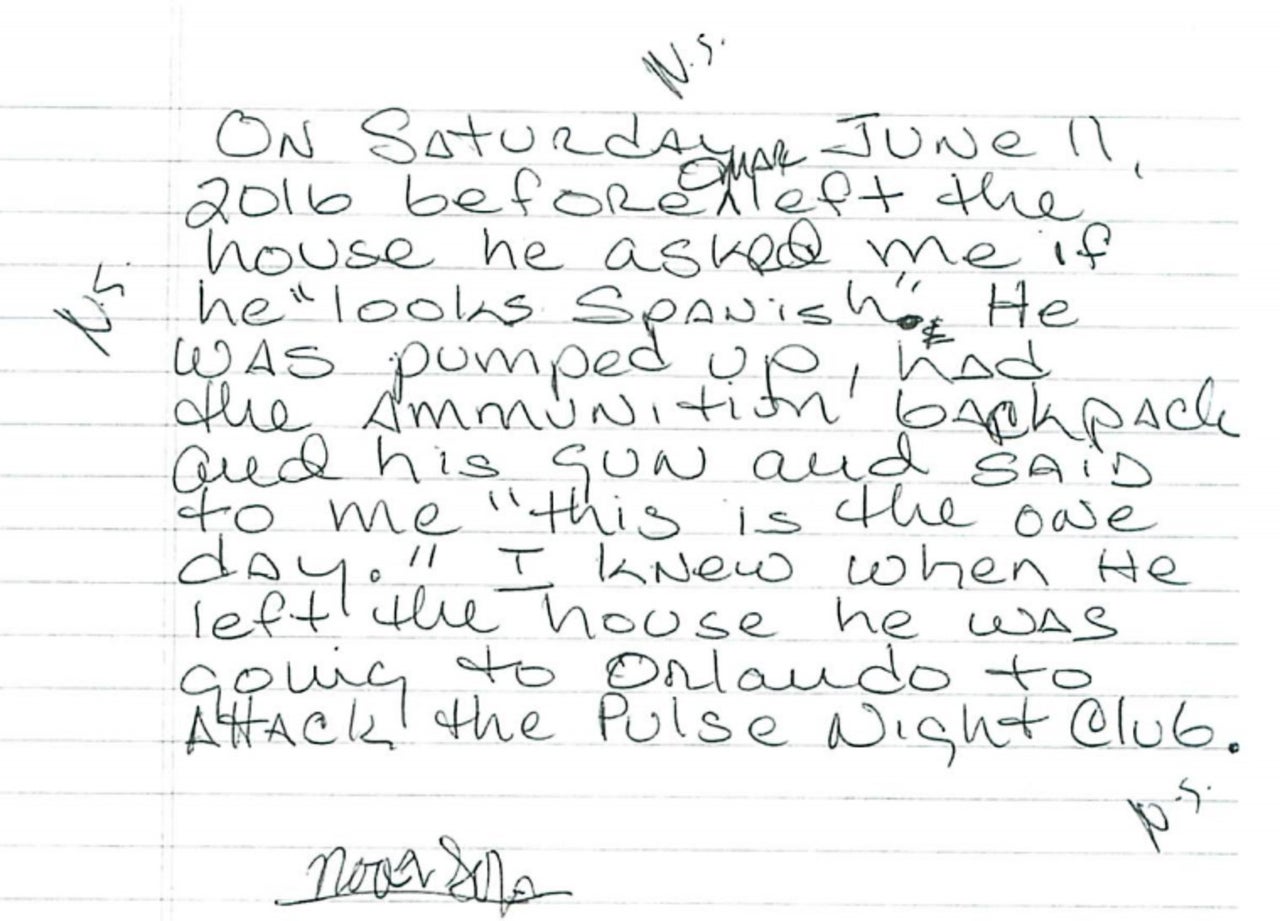 N.S.
ON SATURDAY JUNE 11,
OMAR
2016 before left the
house he asked me if
N.S.
he "looks SPANish". He
WAS pumped up, had
the AmmuNition backpack
and his gUN and SAID
to me "this is the one
day." I kNew when He
left the house he was
going to Orlando to
Attack the Pulse Night Club.
N.S.
Noor Sal